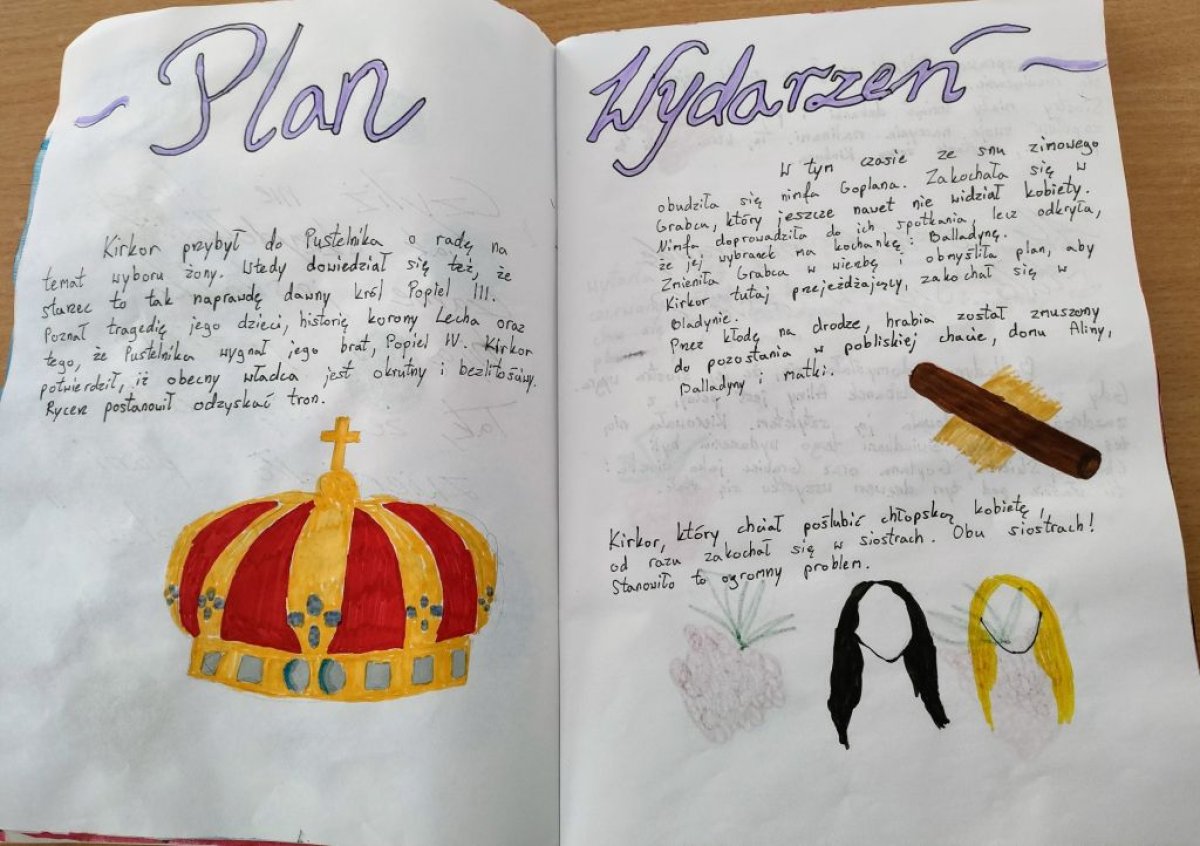 ~ Plan
Wydarzeń ~
Kirkor przybył do Pustelnika o radę na
temat wyboru żony. Wtedy dowiedział się też, że
starzec to tak naprawdę dawny król Popiel III.
Poznał tragedię jego dzieci, historię korony Lecha oraz
tego, że Pustelnika wygnał jego brat, Popiel IV. Kirkor
potwierdził, iż obecny władca jest okrutny i bezlitościwy.
Rycerz postanowił odzyskać tron.
W tym czasie ze snu zimowego
obudziła się nimfa Goplana. Zakochała się w
Grabcu, który jeszcze nawet nie widział kobiety.
Nimfa doprowadziła do ich spotkania, lecz odkryła,
że jej wybranek ma kochankę: Balladynę.
Zmieniła Grabca w wierzbę i obmyśliła plan, aby
Kirkor tutaj przejeżdżający, zakochał się w
Bladynie.
Przez kłodę na drodze, hrabia został zmuszony
do pozostania w pobliskiej chacie, domu Aliny,
Balladyny i matki.
Kirkor, który chciał poślubić chłopską kobietę,
od razu zakochał się w siostrach. Obu siostrach!
Stanowiło to ogromny problem.